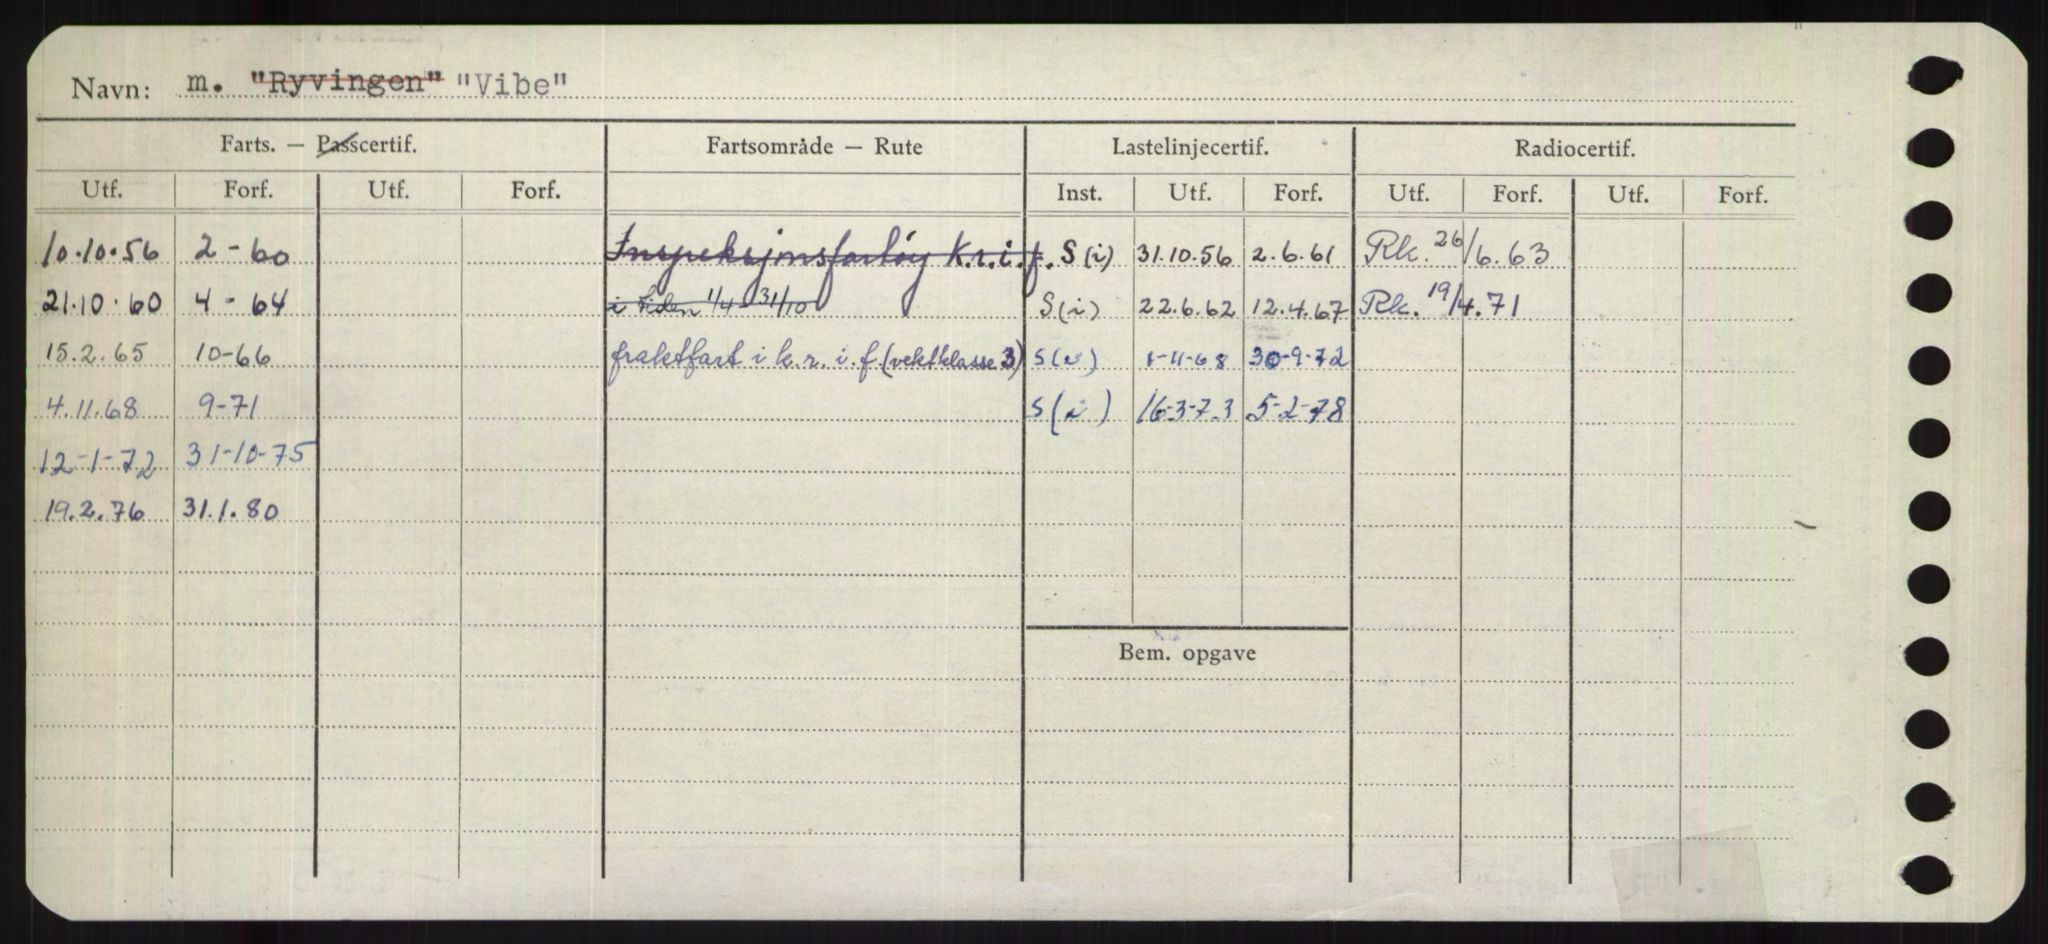 Navn: m. "Ryvingen" "Vibe"
Farts. — Passcertif. Fartsområde — Rute Lastelinjecertif. Radiocertif.
Utf. Forf. Utf. Forf. Inst. Utf. Forf. Utf. Forf. Utf. Forf.
10.10.56 2-60 Inspeksjonsfartøy k.r.i.f. S(i) 31.10.56 2.6.61 Rk. 26/6.63
21.10.60 4-64 i tiden 1/4-31/10 S(i) 22.6.62 12.4.67 Rk. 19/4.71
15.2.65 10-66 fraktfart i k.r.i.f. (vektklasse 3) S(i) 1-11-68 30-9-72
4.11.68 9-71 S(i) 16-3-73 5-2-78
12-1-72 31-10-75
19.2.76 31.1.80
Bem. opgave